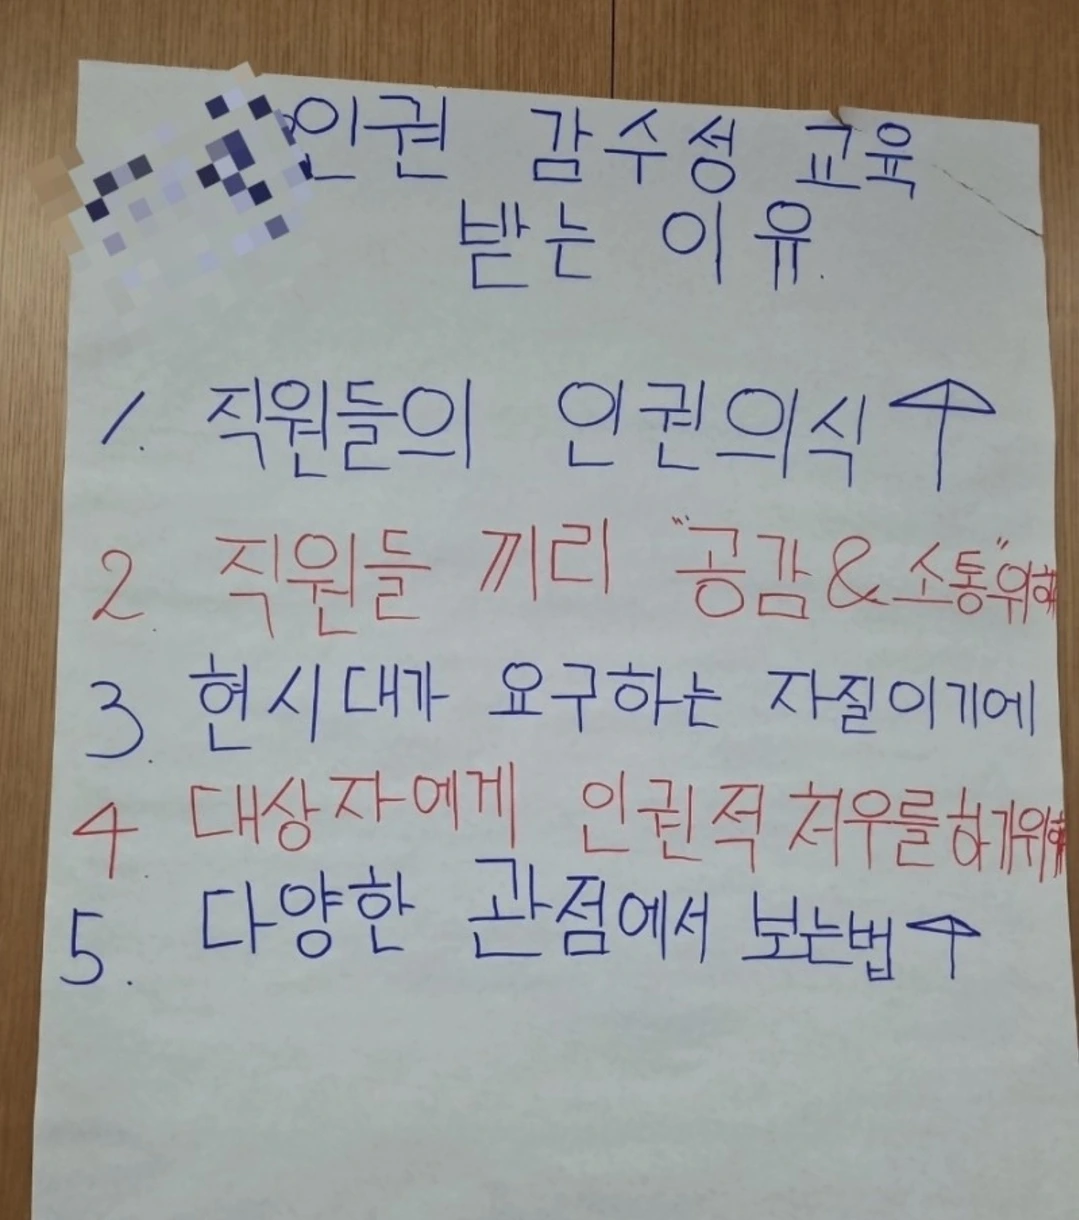 인권 감수성 교육
받는 이유.
1. 직원들의 인권의식 ↑
2. 직원들 끼리 "공감&소통"위해
3. 현시대가 요구하는 자질이기에
4. 대상자에게 인권적 처우를 하기위해
5. 다양한 관점에서 보는법 ↑